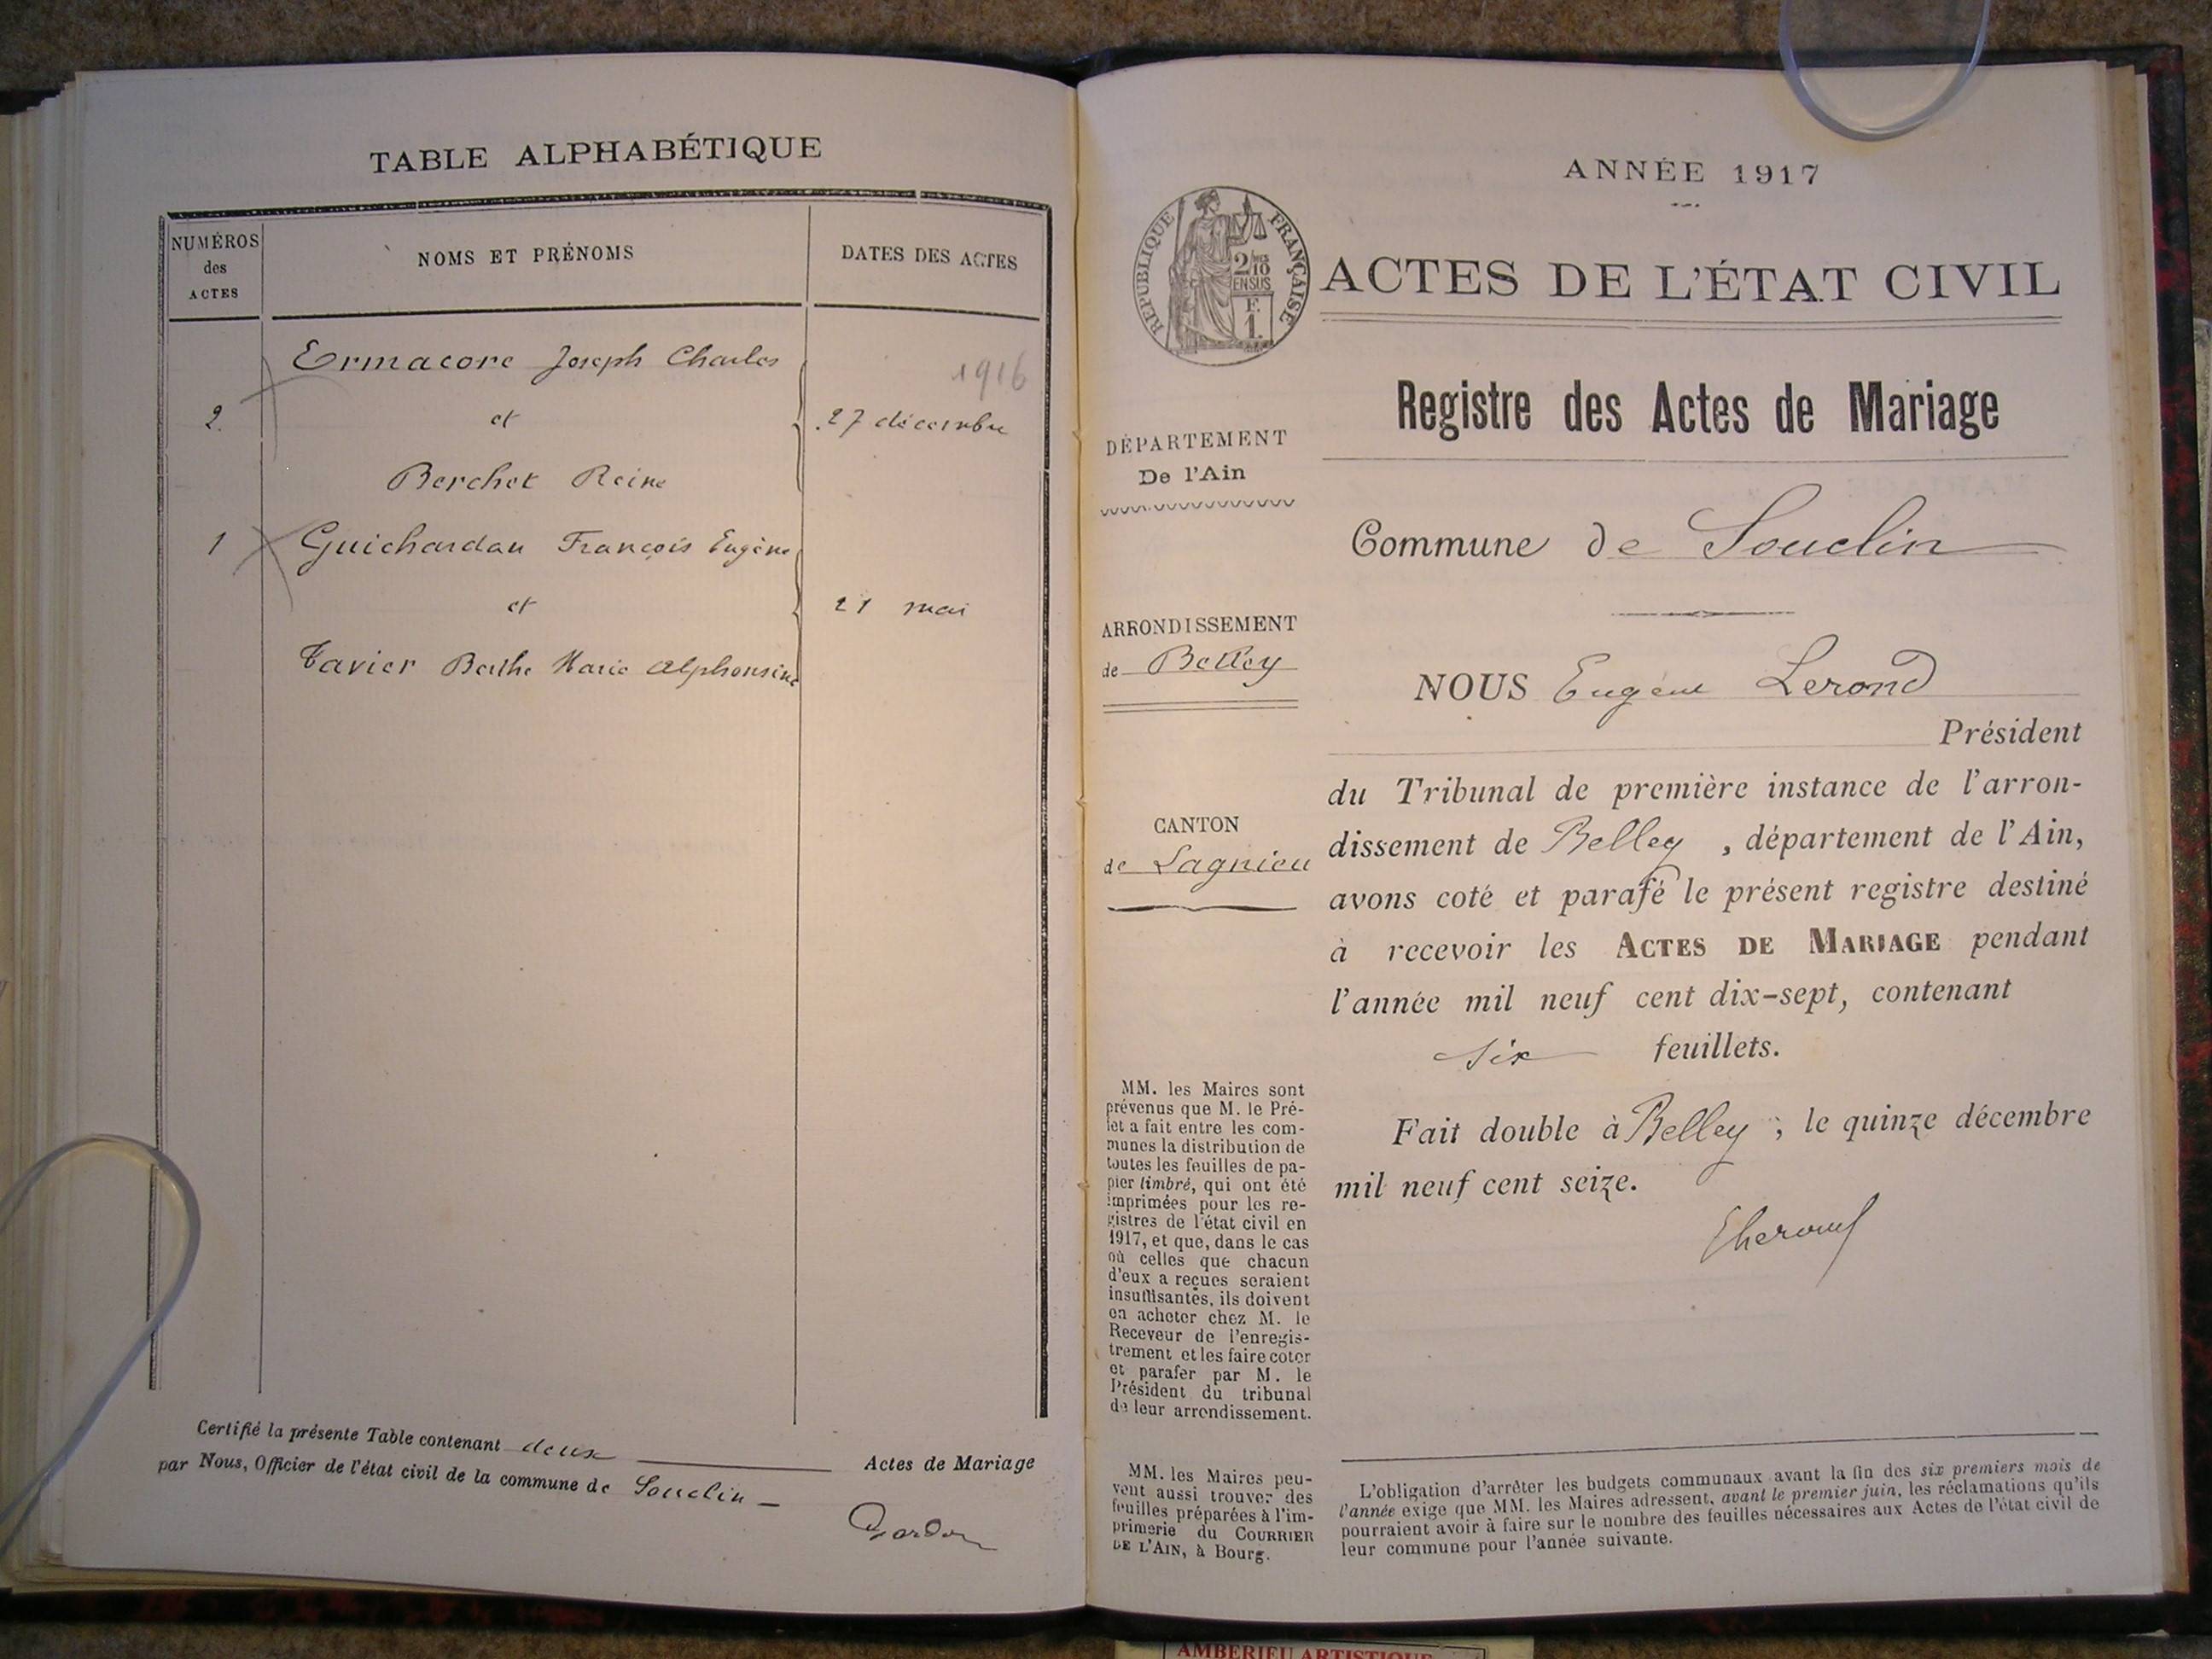 TABLE ALPHABÉTIQUE
NUMÉROS
des
ACTES
NOMS ET PRÉNOMS
DATES DES ACTES
Ermacore Joseph Charles
1916
2.
et
27 décembre
Berchet Reine
1
Guichardan François Eugène
et
21 mai
Tavier Berthe Marie Alphonsine
Certifié la présente Table contenant deux Actes de Mariage
par Nous, Officier de l'état civil de la commune de Souclin
ANNÉE 1917
RÉPUBLIQUE FRANÇAISE
2/10
EN SUS
F.
1.
ACTES DE L'ÉTAT CIVIL
Registre des Actes de Mariage
DÉPARTEMENT
De l'Ain
Commune de Souclin
ARRONDISSEMENT
de Belley
NOUS Eugène Lerond
Président
du Tribunal de première instance de l'arron-
dissement de Belley, département de l'Ain,
avons coté et parafé le présent registre destiné
à recevoir les ACTES DE MARIAGE pendant
l'année mil neuf cent dix-sept, contenant
six feuillets.
Fait double à Belley, le quinze décembre
mil neuf cent seize.
CANTON
de Lagnieu
MM. les Maires sont
prévenus que M. le Pré-
fet a fait entre les com-
munes la distribution de
toutes les feuilles de pa-
pier timbré, qui ont été
imprimées pour les re-
gistres de l'état civil en
1917, et que, dans le cas
où celles que chacun
d'eux a reçues seraient
insuffisantes, ils doivent
en acheter chez M. le
Receveur de l'enregis-
trement et les faire coter
et parafer par M. le
Président du tribunal
de leur arrondissement.
MM. les Maires peu-
vent aussi trouver des
feuilles préparées à l'im-
primerie du COURRIER
DE L'AIN, à Bourg.
L'obligation d'arrêter les budgets communaux avant la fin des six premiers mois de
l'année exige que MM. les Maires adressent, avant le premier juin, les réclamations qu'ils
pourraient avoir à faire sur le nombre des feuilles nécessaires aux Actes de l'état civil de
leur commune pour l'année suivante.
AMBERIEU ARTISTIQUE